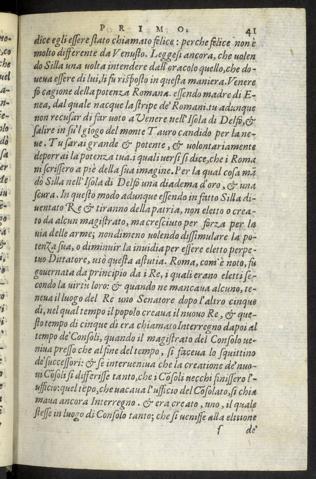 PRIMO. 41
dice egli essere stato chiamato felice: perche felice non è
molto differente da Venusto. Leggesi ancora, che uolen
do Silla una uolta intendere dall'oracolo quello, che do-
ueua essere di lui, li fu risposto in questa maniera. Venere
fo cagione della potenza Romana. essendo madre di E-
nea, dal quale nacque la stirpe de' Romani. tu adunque
non recusar di far uoto a Venere nell'Isola di Delfo, &
salire in su'l giogo del monte Tauro candido per la ne-
ue. Tu sarai grande & potente, & uolontariamente
deporrai la potenza tua. i quali uersi si dice, che i Roma
ni scrissero a piè della sua imagine. Per la qual cosa mã
dò Silla nell'Isola di Delfo una diadema d'oro, & una
scura. In questo modo adunque essendo in fatto Silla di-
uentato Re & tiranno della patria, non eletto o crea-
to da alcun magistrato, ma cresciuto per forza per la
uia delle arme; nondimeno uolendo dissimulare la po-
tenza sua, o diminuir la inuidia per essere eletto perpe-
tuo Dittatore, usò questa astutia. Roma, com'è noto, fu
gouernata da principio da i Re, i quali erano eletti se-
condo la uirtù loro: & quando ne mancaua alcuno, te-
neua il luogo del Re uno Senatore dopo l'altro cinque
dì, nel qual tempo il popolo creaua il nuouo Re, & que-
sto tempo di cinque dì era chiamato Interregno dapoi al
tempo de' Consoli, quando il magistrato del Consolo ue-
niua presso che al fine del tempo, si faceua lo squittino
de' successori: & se interueniua che la creatione de' nuo-
ui Cõsoli si differisse tanto, che i Cõsoli uecchi finissero l'-
ufficio: quel tẽpo, che uacaua l'ufficio del Cõsolato, si chia
maua ancora Interregno. & era creato, uno, il quale
stesse in luogo di Consolo tanto; che si uenisse alla elttione
f de'